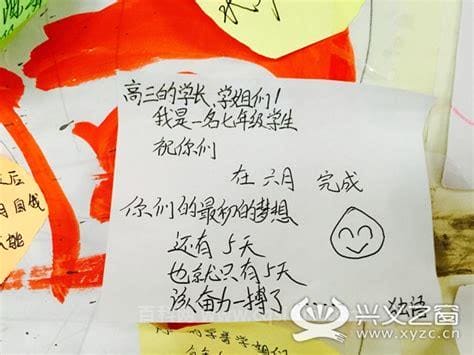 高三的学长、学姐们！
我是一名七年级学生
祝你们
在六月 完成
你们的最初的梦想
还有5天
也就只有5天
该奋力一搏了
兴义之窗
www.xyzc.cn